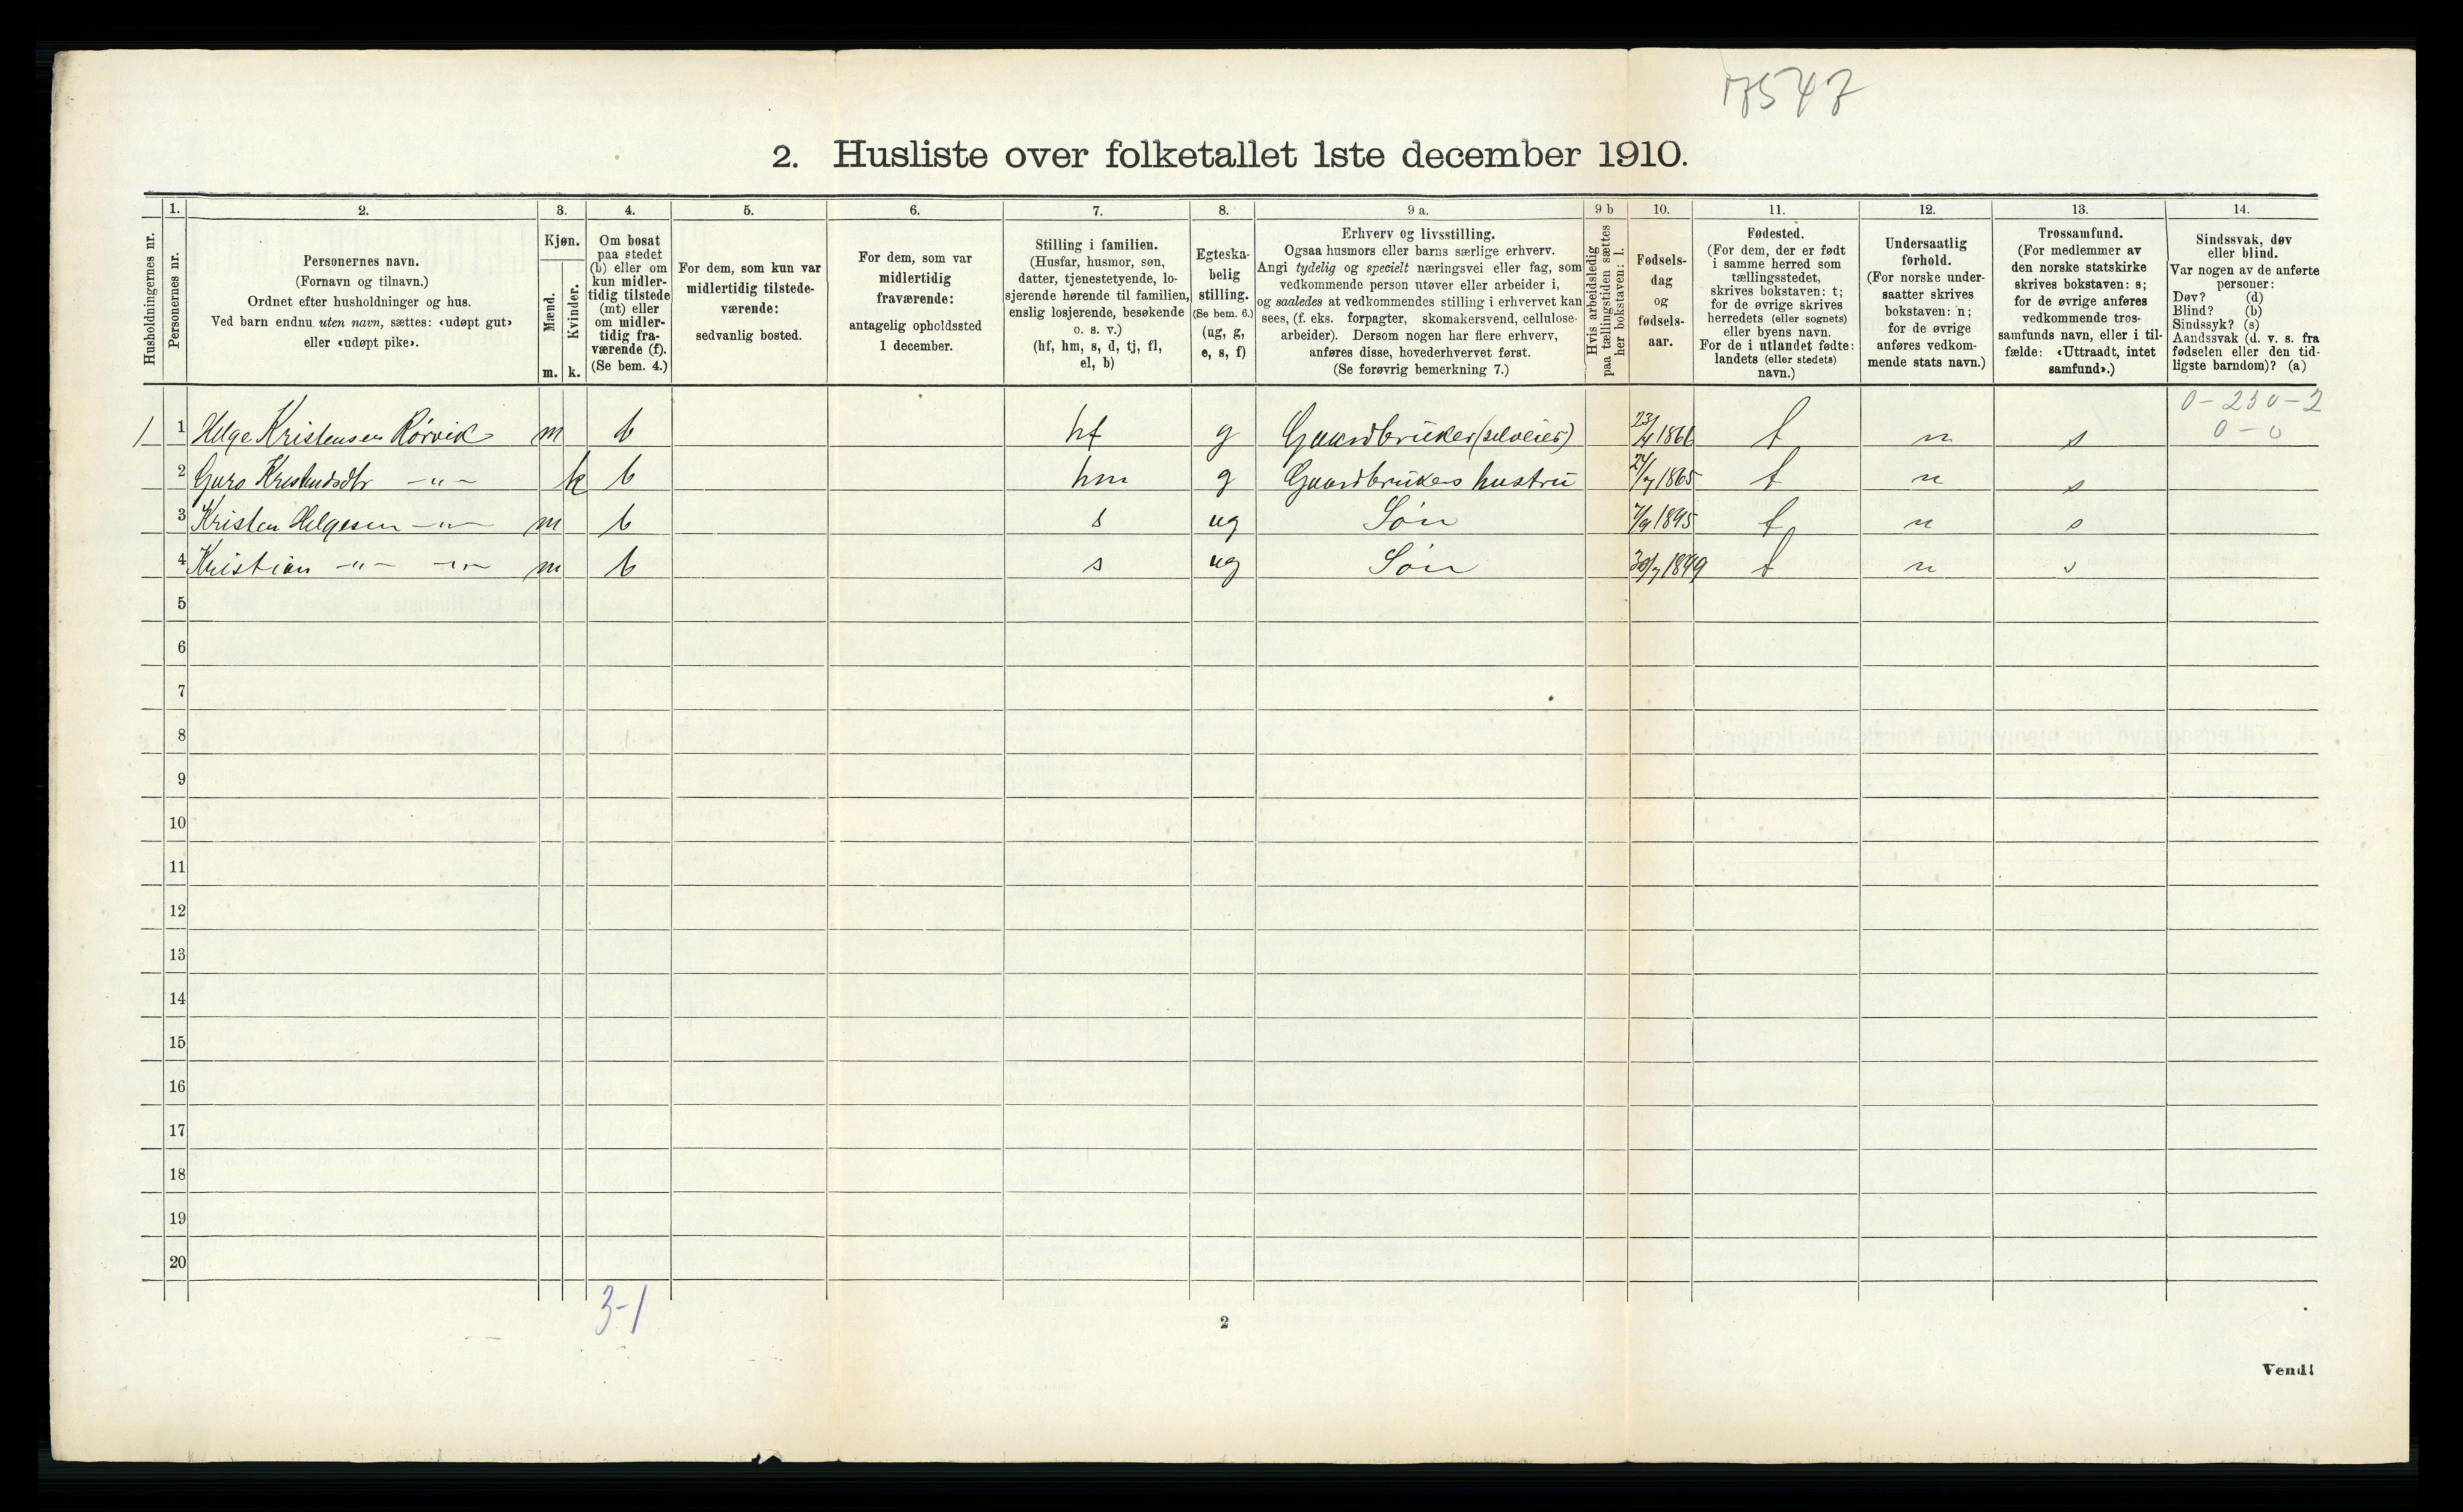 17547
2. Husliste over folketallet 1ste december 1910.
Husholdningernes nr.
1.
Personernes nr.
2.
Personernes navn.
(Fornavn og tilnavn.)
Ordnet efter husholdninger og hus.
Ved barn endnu uten navn, sættes: «udøpt gut»
eller «udøpt pike».
3.
Kjøn.
Mænd.
Kvinder.
m. k.
4.
Om bosat
paa stedet
(b) eller om
kun midler-
tidig tilstede
(mt) eller
om midler-
tidig fra-
værende (f).
(Se bem. 4.)
5.
For dem, som kun var
midlertidig tilstede-
værende:
sedvanlig bosted.
6.
For dem, som var
midlertidig
fraværende:
antagelig opholdssted
1 december.
7.
Stilling i familien.
(Husfar, husmor, søn,
datter, tjenestetyende, lo-
sjerende hørende til familien,
enslig losjerende, besøkende
o. s. v.)
(hf, hm, s, d, tj, fl,
el, b)
8.
Egteska-
belig
stilling.
(Se bem. 6.)
(ug, g,
e, s, f)
9 a.
Erhverv og livsstilling.
Ogsaa husmors eller barns særlige erhverv.
Angi tydelig og specielt næringsvei eller fag, som
vedkommende person utøver eller arbeider i,
og saaledes at vedkommendes stilling i erhvervet kan
sees, (f. eks. forpagter, skomakersvend, cellulose-
arbeider). Dersom nogen har flere erhverv,
anføres disse, hovederhvervet først.
(Se forøvrig bemerkning 7.)
9 b
Hvis arbeidsledig
paa tællingstiden sættes
her bokstaven: l.
10.
Fødsels-
dag
og
fødsels-
aar.
11.
Fødested.
(For dem, der er født
i samme herred som
tællingsstedet,
skrives bokstaven: t;
for de øvrige skrives
herredets (eller sognets)
eller byens navn.
For de i utlandet fødte:
landets (eller stedets)
navn.)
12.
Undersaatlig
forhold.
(For norske under-
saatter skrives
bokstaven: n;
for de øvrige
anføres vedkom-
mende stats navn.)
13.
Trossamfund.
(For medlemmer av
den norske statskirke
skrives bokstaven: s;
for de øvrige anføres
vedkommende tros-
samfunds navn, eller i til-
fælde: «Uttraadt, intet
samfund».)
14.
Sindssvak, døv
eller blind.
Var nogen av de anførte
personer:
Døv? (d)
Blind? (b)
Sindssyk? (s)
Aandssvak (d. v. s. fra
fødselen eller den tid-
ligste barndom)? (a)
0-230-2
0-0
1 1 Helge Kristensen Rørvik m b hf g Gaardbruker (selveier) 23/4 1866 t n s
2 Guro -"- k b hm g Gaardbrukers hustru 24/7 1865 t n s
3 Kristen Helgesen -"- m b s ug Søn 7/9 1895 t n s
4 Kristian -"- -"- m b s ug Søn 30/7 1899 t n s
5
6
7
8
9
10
11
12
13
14
15
16
17
18
19
20
3-1
2
Vend!